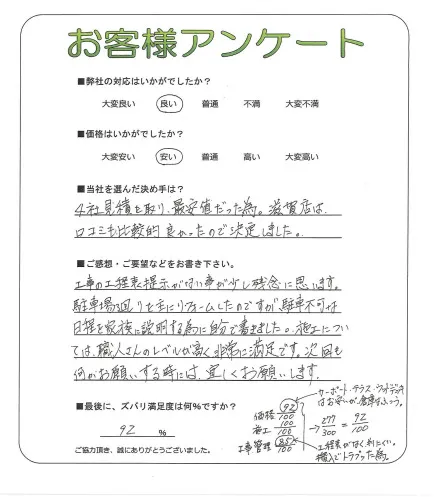 お客様アンケート
■弊社の対応はいかがでしたか?
大変良い 良い 普通 不満 大変不満
■価格はいかがでしたか?
大変安い 安い 普通 高い 大変高い
■当社を選んだ決め手は?
4社見積を取り、最安値だった為。滋賀店は、
口コミも比較的良かったので決定しました。
■ご感想・ご要望などをお書き下さい。
工事の工程表提示がない事が少し残念に思います。
駐車場廻りを主にリフォームしたのですが、駐車不可な
日程を家族に説明する為に自分で書きました。施工につい
ては、職人さんのレベルが高く非常に満足です。次回も
何かお願いする時には、宜しくお願いします。
■最後に、ズバリ満足度は何%ですか?
92 %
ご協力頂き、誠にありがとうございました。
カーポート・テラス・
はお安いが、倉庫は
価格 92/100
施工 100/100
工事管理 85/100
→ 277/300 = 92/100
工程表がなく、判りにくい。
搬入でトラブった為。